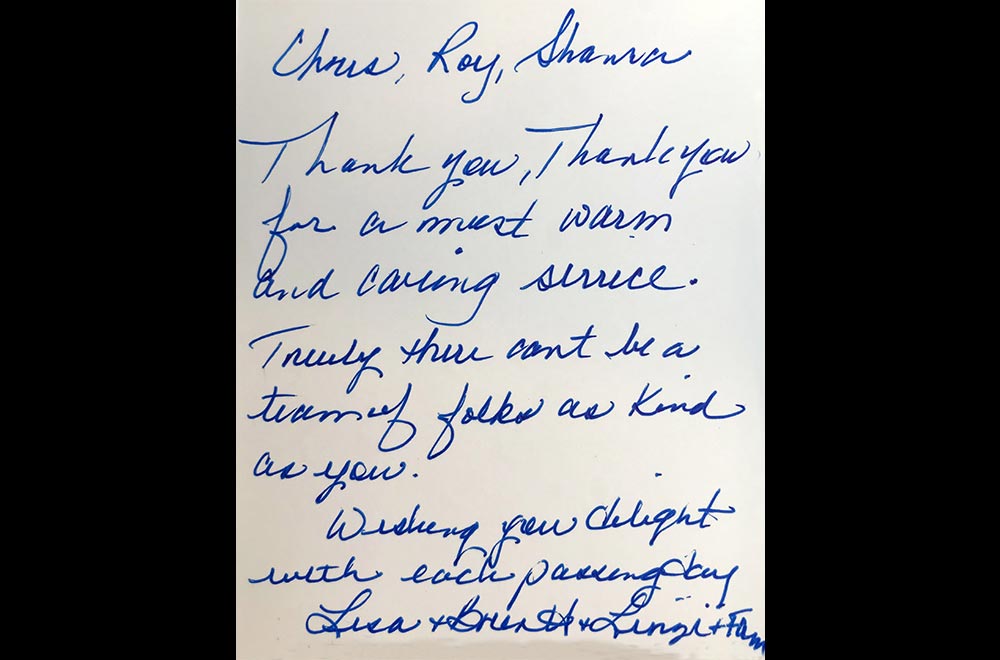 Chris, Roy, Shawna
Thank you, Thank you
for a most warm
and caring service.
Truly there can't be a
team of folks as kind
as you.
Wishing you delight
with each passing day
Lisa + + Linzi + Fam